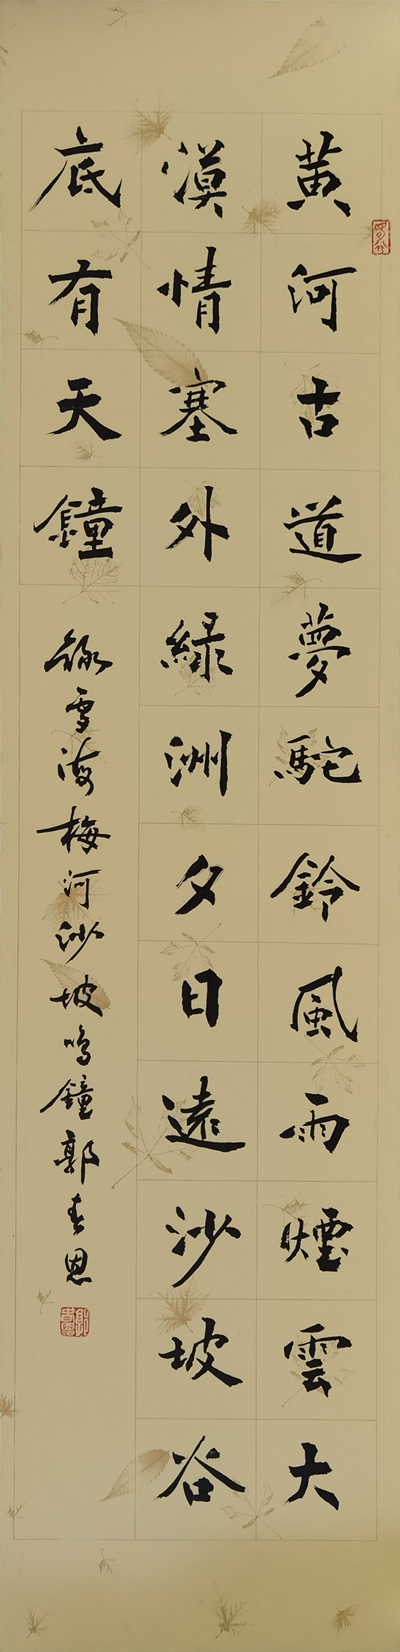 黄河古道夢駝鈴風雨煙雲大
漠情塞外緑洲夕日遠沙坡谷
底有天鐘
錄雪海梅河沙坡鳴鐘郭春恩